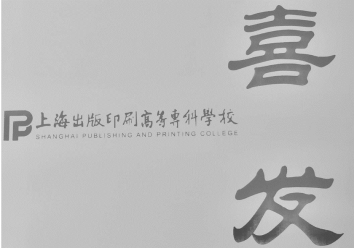 上海出版印刷高等專科學校
SHANGHAI PUBLISHING AND PRINTING COLLEGE
喜
发